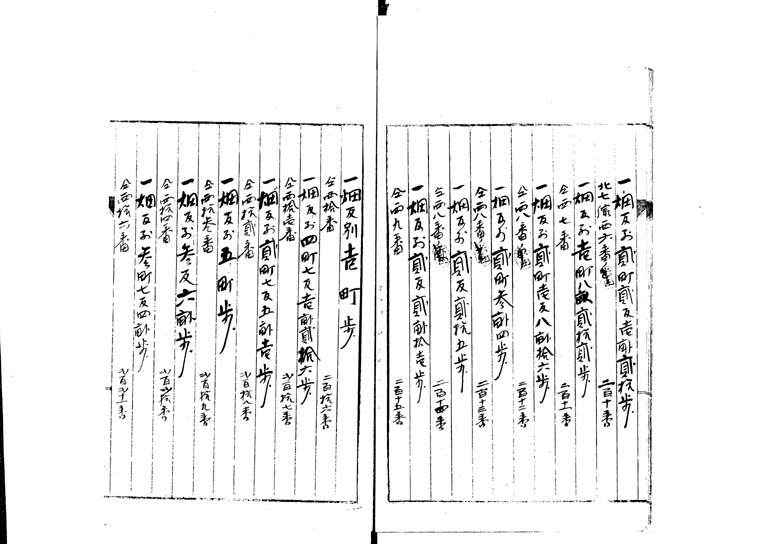 一畑反別貳町貳反壱畝貳拾歩
北七線西六番
二百十番
一畑反別壱町八畝貳拾貳歩
仝西七番
二百十一番
一畑反別貳町壱反八畝拾六歩
仝西八番
二百十二番
一畑反別貳町参畝四歩
仝西八番
二百十三番
一畑反別貳反貳拾五歩
仝西八番
二百十四番
一畑反別貳反貳畝拾壱歩
仝西九番
二百十五番
一畑反別壱町歩
仝西拾番
二百拾六番
一畑反別四町七反壱畝貳拾六歩
仝西拾壱番
二百拾七番
一畑反別貳町七反五畝壱歩
仝西拾貳番
二百拾八番
一畑反別五町歩
仝西拾参番
二百拾九番
一畑反別参反六畝歩
仝西拾四番
一畑反別参町七反四畝歩
仝西拾六番